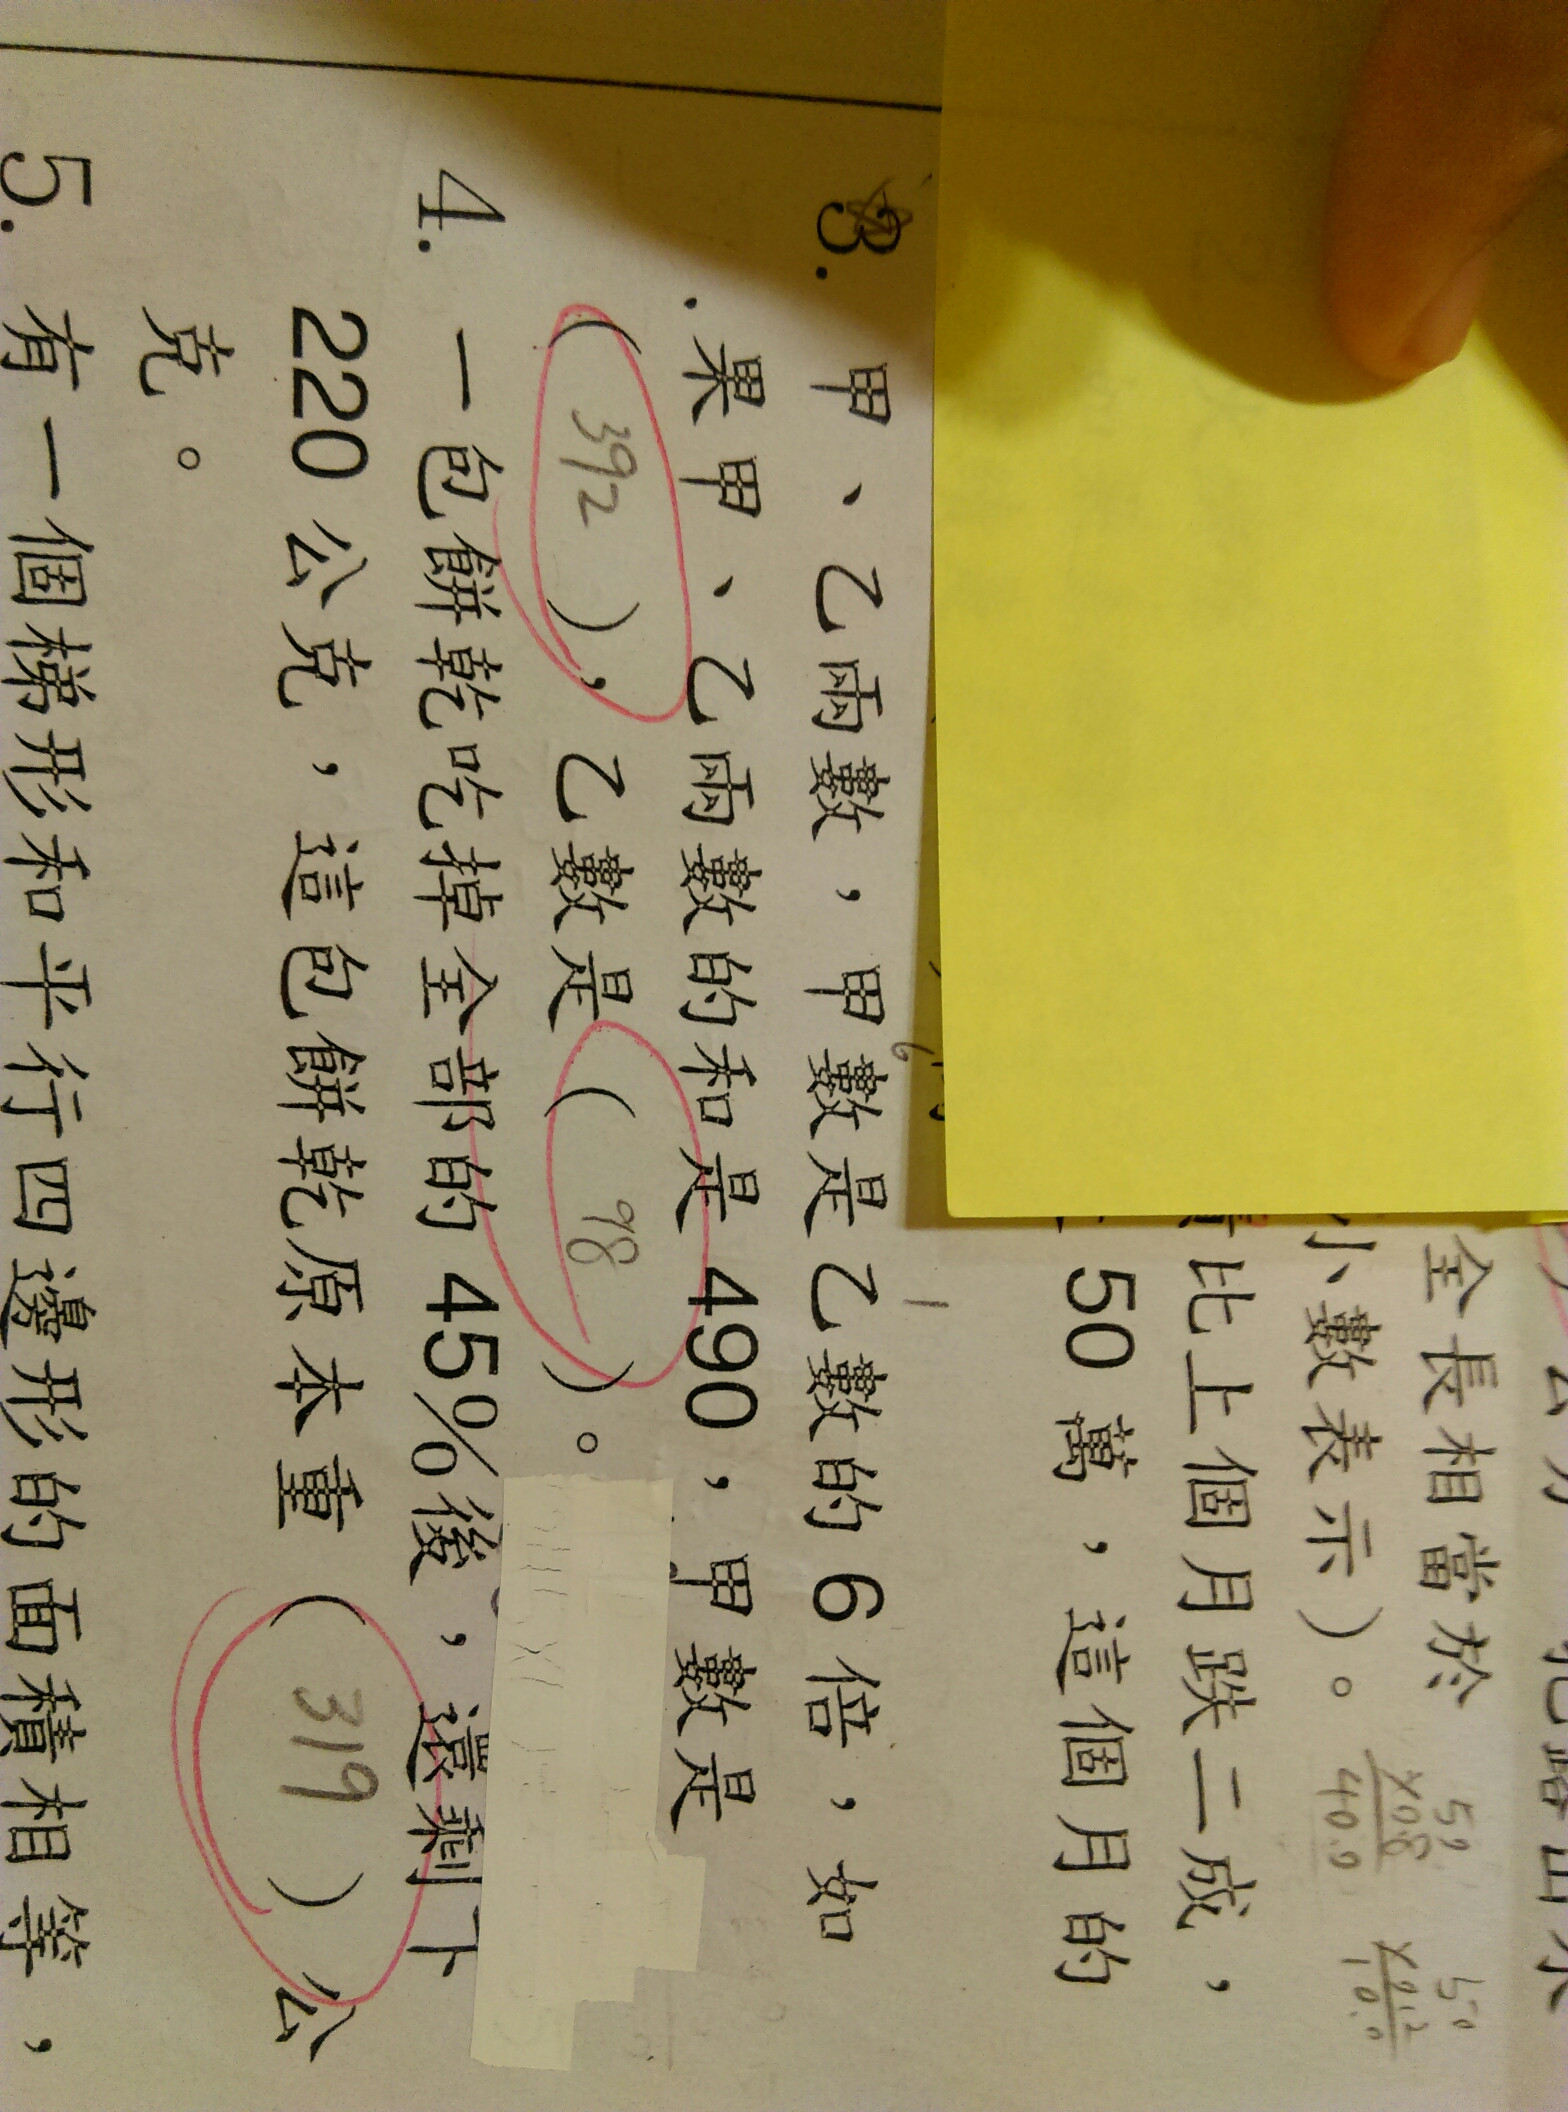 全長相當於
小數表示)。
比上個月跌二成，
50萬，這個月的
3. 甲、乙兩數，甲數是乙數的6倍，如
果甲、乙兩數的和是490，甲數是
(392)，乙數是(98)。
4. 一包餅乾吃掉全部的45%後，還剩下
220公克，這包餅乾原本重(319)公
克。
5. 有一個梯形和平行四邊形的面積相等，